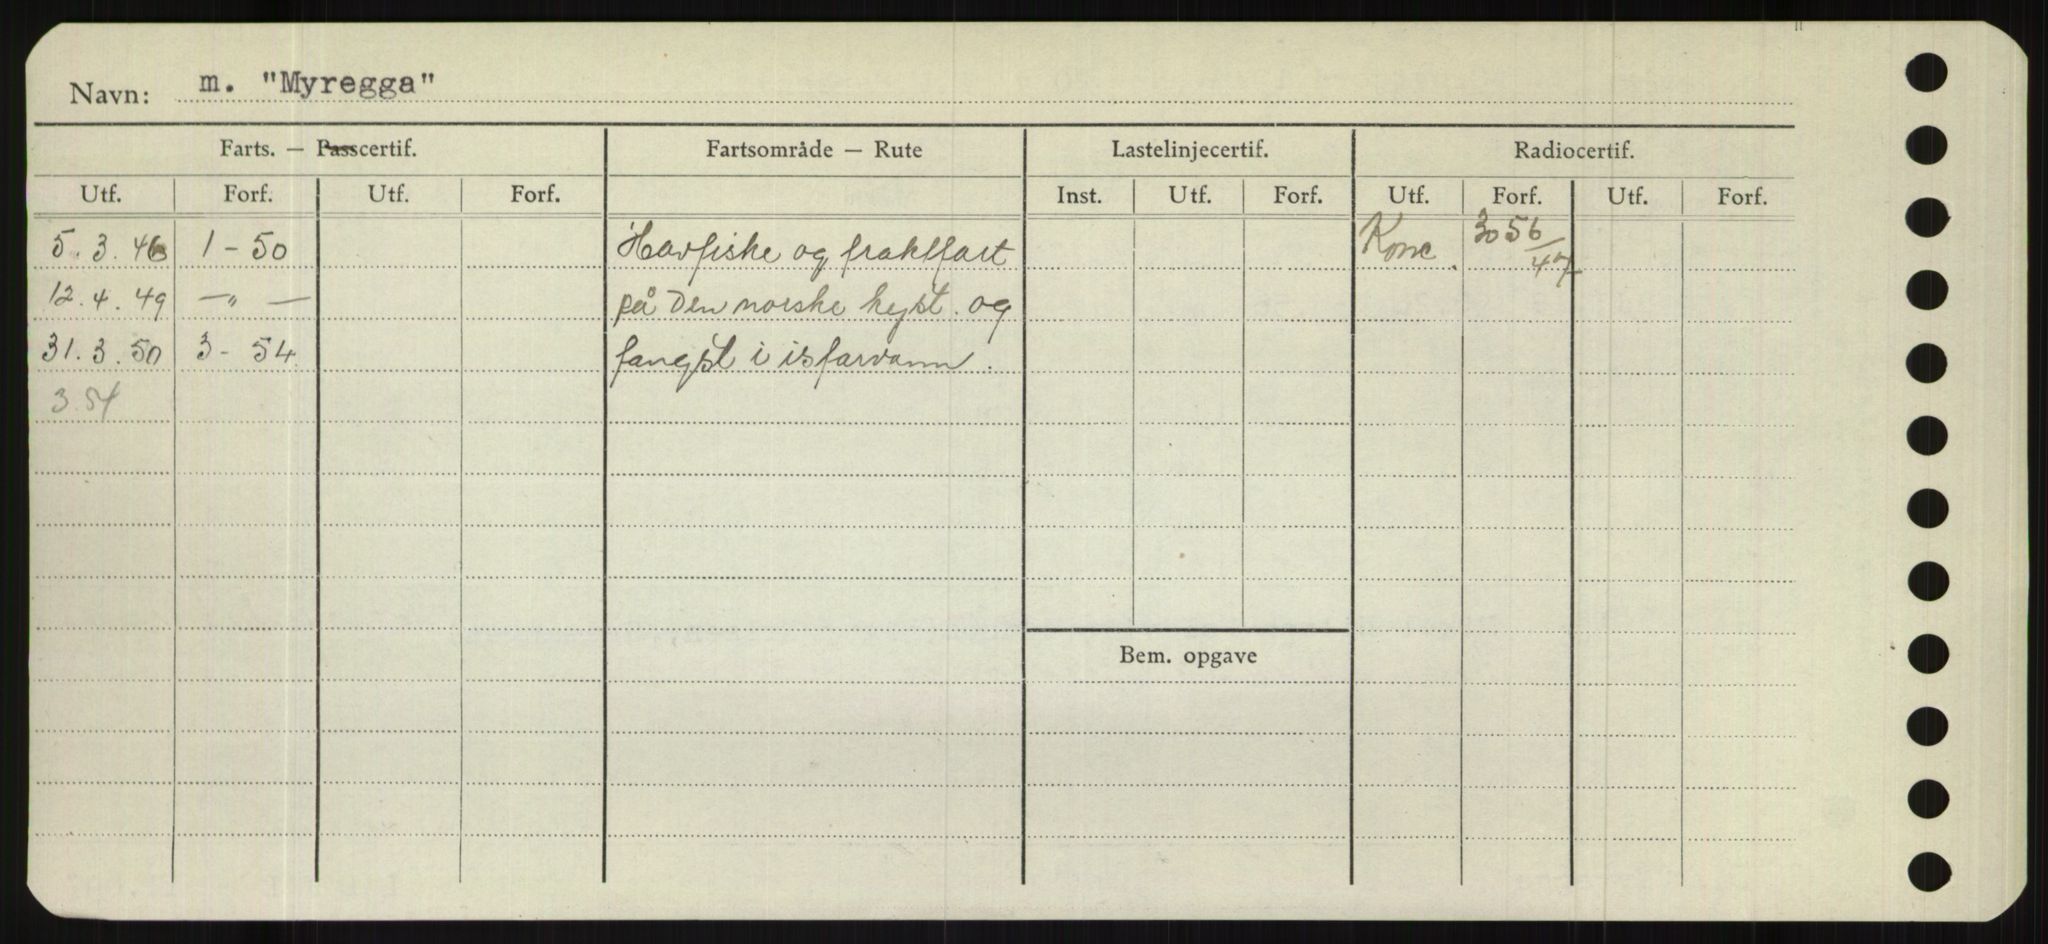 Navn: m. "Myregga"
Farts. — Passcertif. Fartsområde — Rute Lastelinjecertif. Radiocertif.
Utf. Forf. Utf. Forf. Inst. Utf. Forf. Utf. Forf. Utf. Forf.
5.3.46 1-50 Havfiske og fraktfart Konc. 3056/47
12.4.49 —"— på den norske kyst. og
31.3.50 3-54. fangst i isfarvann.
3.54
Bem. opgave